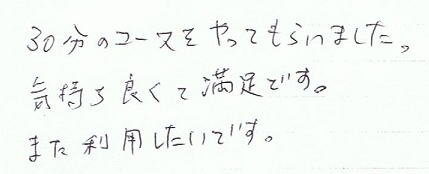 30分のコースをやってもらいました。
気持ち良くて満足です。
また利用したいです。